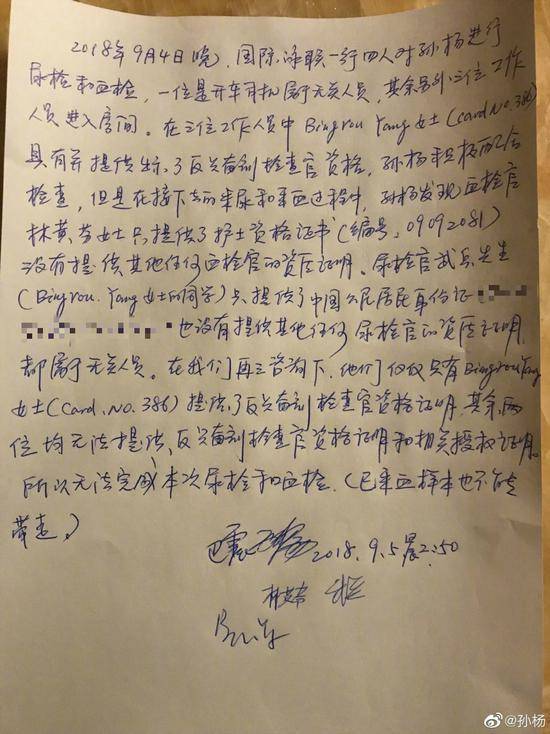 2018年9月4日晚,国际泳联一行四人对孙杨进行
尿检和血检,一位是开车司机属于无关人员,其余另外三位工作
人员进入房间。在三位工作人员中Bingrou Yang女士(card.No.386)
具有并提供出示了反兴奋剂检查官资格,孙杨积极配合
检查,但是在接下去的采尿和采血过程中,孙杨发现血检官
林黄芬女士只提供了护士资格证书(编号:09092081)
没有提供其他任何血检官的资质证明。尿检官武兵先生
(Bingrou Yang女士的同学)只提供了中国公民居民身份证
也没有提供其他任何尿检官的资质证明
都属于无关人员。在我们再三咨询下,他们仅仅只有Bingrou Yang
女士(Card.No.386)提供了反兴奋剂检查官资格证明,其余两
位均无法提供反兴奋剂检查官资格证明和相关授权证明。
所以无法完成本次尿检和血检.(已采血样本也不能
带走。)
2018.9.5晨2:50
@孙杨